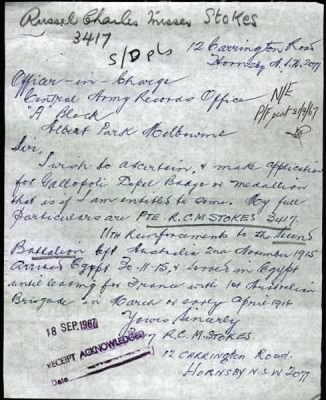 Russel Charles Misser Stokes
3417
S/D pls
12 Carrington Road
Hornsby N.S.W. 2077
Officer-in-Charge
Central Army Records Office
"A" Block
Albert Park Melbourne
Sir,
I wish to ascertain, & make application
for Gallopoli Depot Badge or medallion
that is if I am entitled to same. My full
particulars are PTE. R.C.M STOKES 3417.
11th Reinforcements to the Second
Battalion left Australia 2nd November 1915
arrived Egypt 30-11-15, & served in Egypt
until leaving for France with 1st Australian
Brigade in March or early April 1916
Yours Sincerely
R.C.M. STOKES.
12 CARRINGTON ROAD.
HORNSBY N.S.W 2077
18 SEP 1967
RECEIPT ACKNOWLEDGED
Date